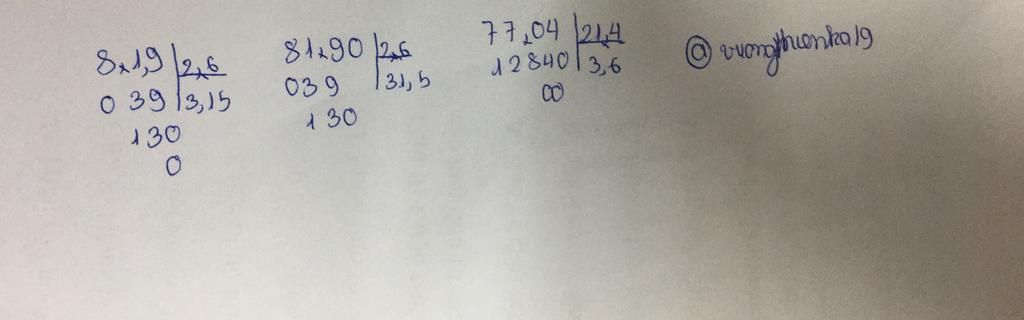 8,1,9 2,6
0 39 3,15
130
0
81,90 2,6
039 31,5
130
77,04 21,4
12840 3,6
00
@vuongthienha19